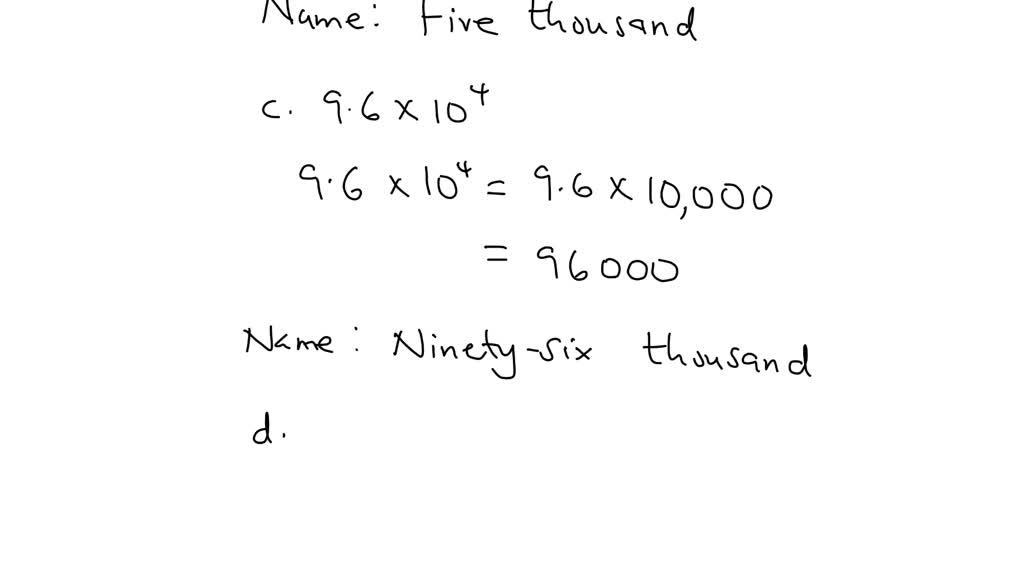 Name: Five thousand
c. 9.6 × 10⁴
9.6 × 10⁴ = 9.6 × 10,000
= 96000
Name: Ninety-six thousand
d.